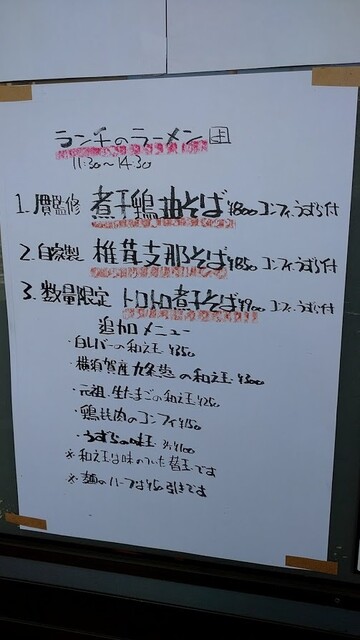 ランチのラーメン
11:30〜14:30
1. 監修 煮干鶏油そば ¥800 コンフィ、うずら付
2. 自家製 椎茸支那そば ¥850 コンフィうずら付
3. 数量限定 トロトロ煮干そば ¥900 コンフィうずら付
追加メニュー
・白レバーの和え玉 ¥350
・横須賀産 の和え玉 ¥300
・元祖 生たまごの和え玉 ¥250
・鶏もも肉のコンフィ ¥150
・うずらの味玉 ¥100
※和え玉は味のついた替玉です
※麺のハーフは¥50引きです